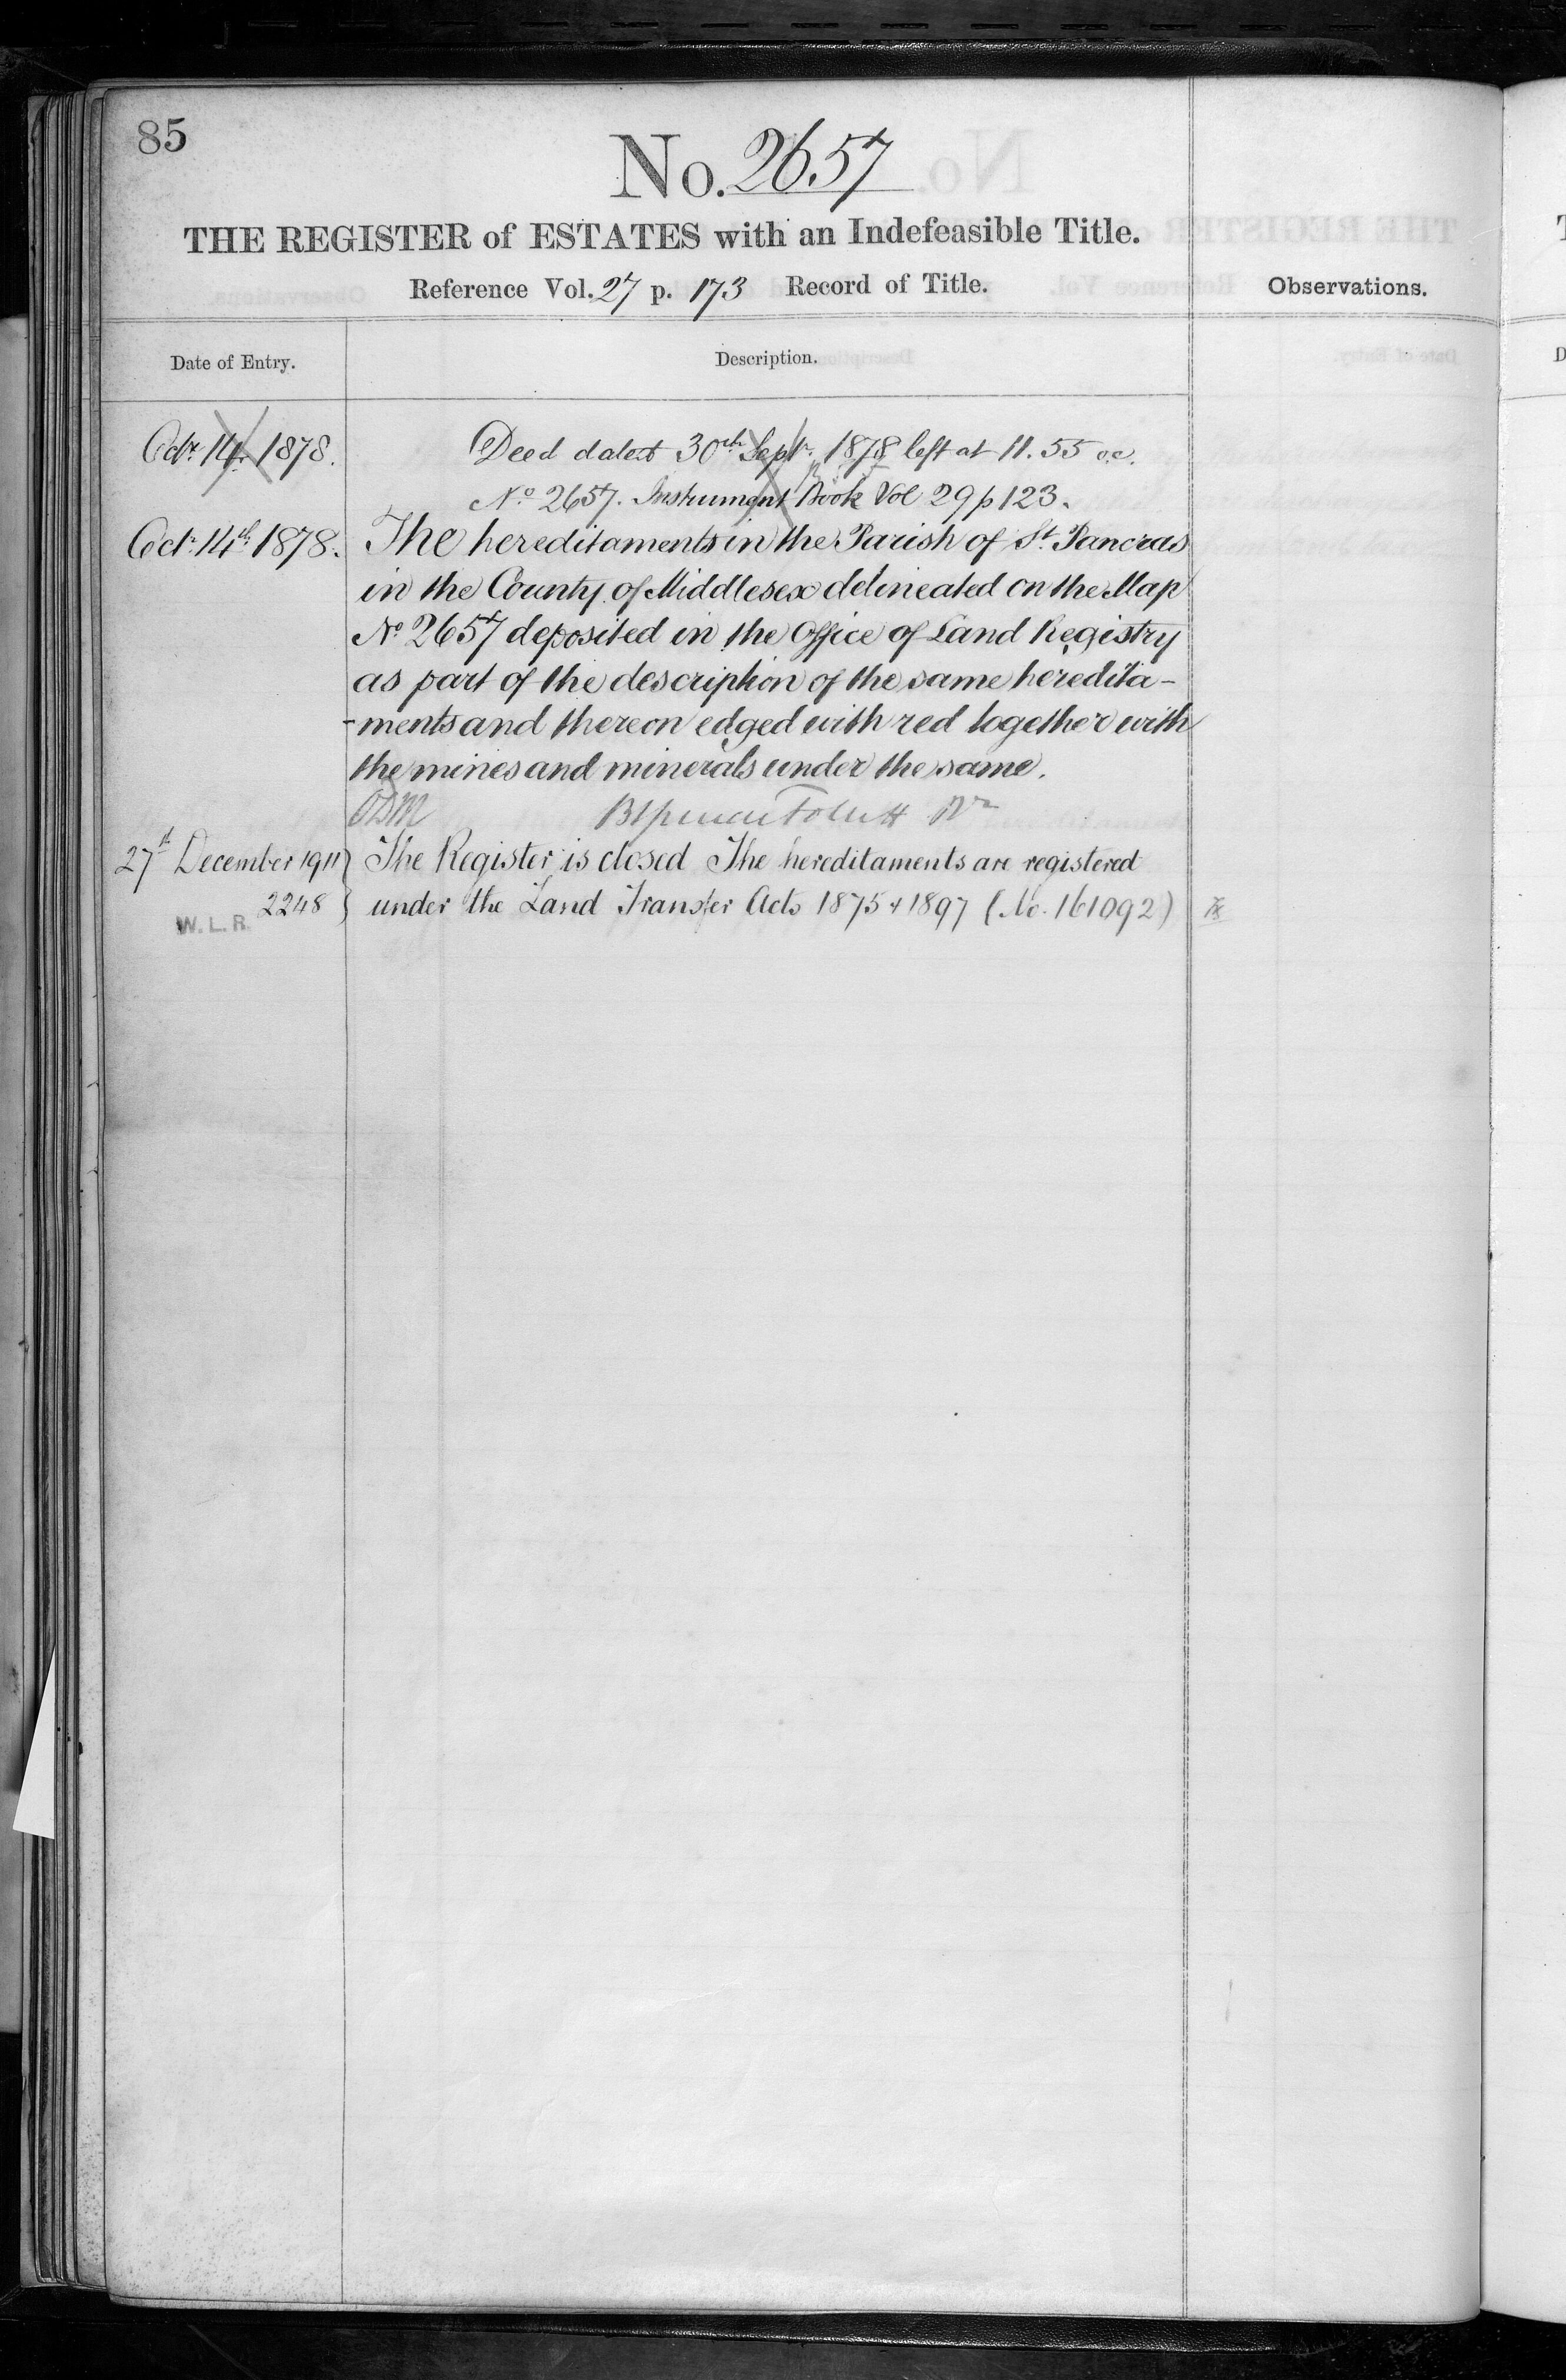 85
No. 2657
THE REGISTER of ESTATES with an Indefeasible Title.
Reference Vol. 27 p. 173 Record of Title.
Observations.
Date of Entry.
Description.
Octr. 14. 1878.
Deed dated 30th Septr. 1878 left at 11.55
No 2657. Instrument Book Vol 29 p 123.
Octr. 14th 1878.
The hereditaments in the Parish of St. Pancras
in the County of Middlesex delineated on the Map
No 2657 deposited in the Office of Land Registry
as part of the description of the same heredita-
-ments and thereon edged with red together with
the mines and minerals under the same.
27th December 1911
The Register is closed The hereditaments are registered
2248
under the Land Transfer Acts 1875 & 1897 (No. 161092)
W. L. R.